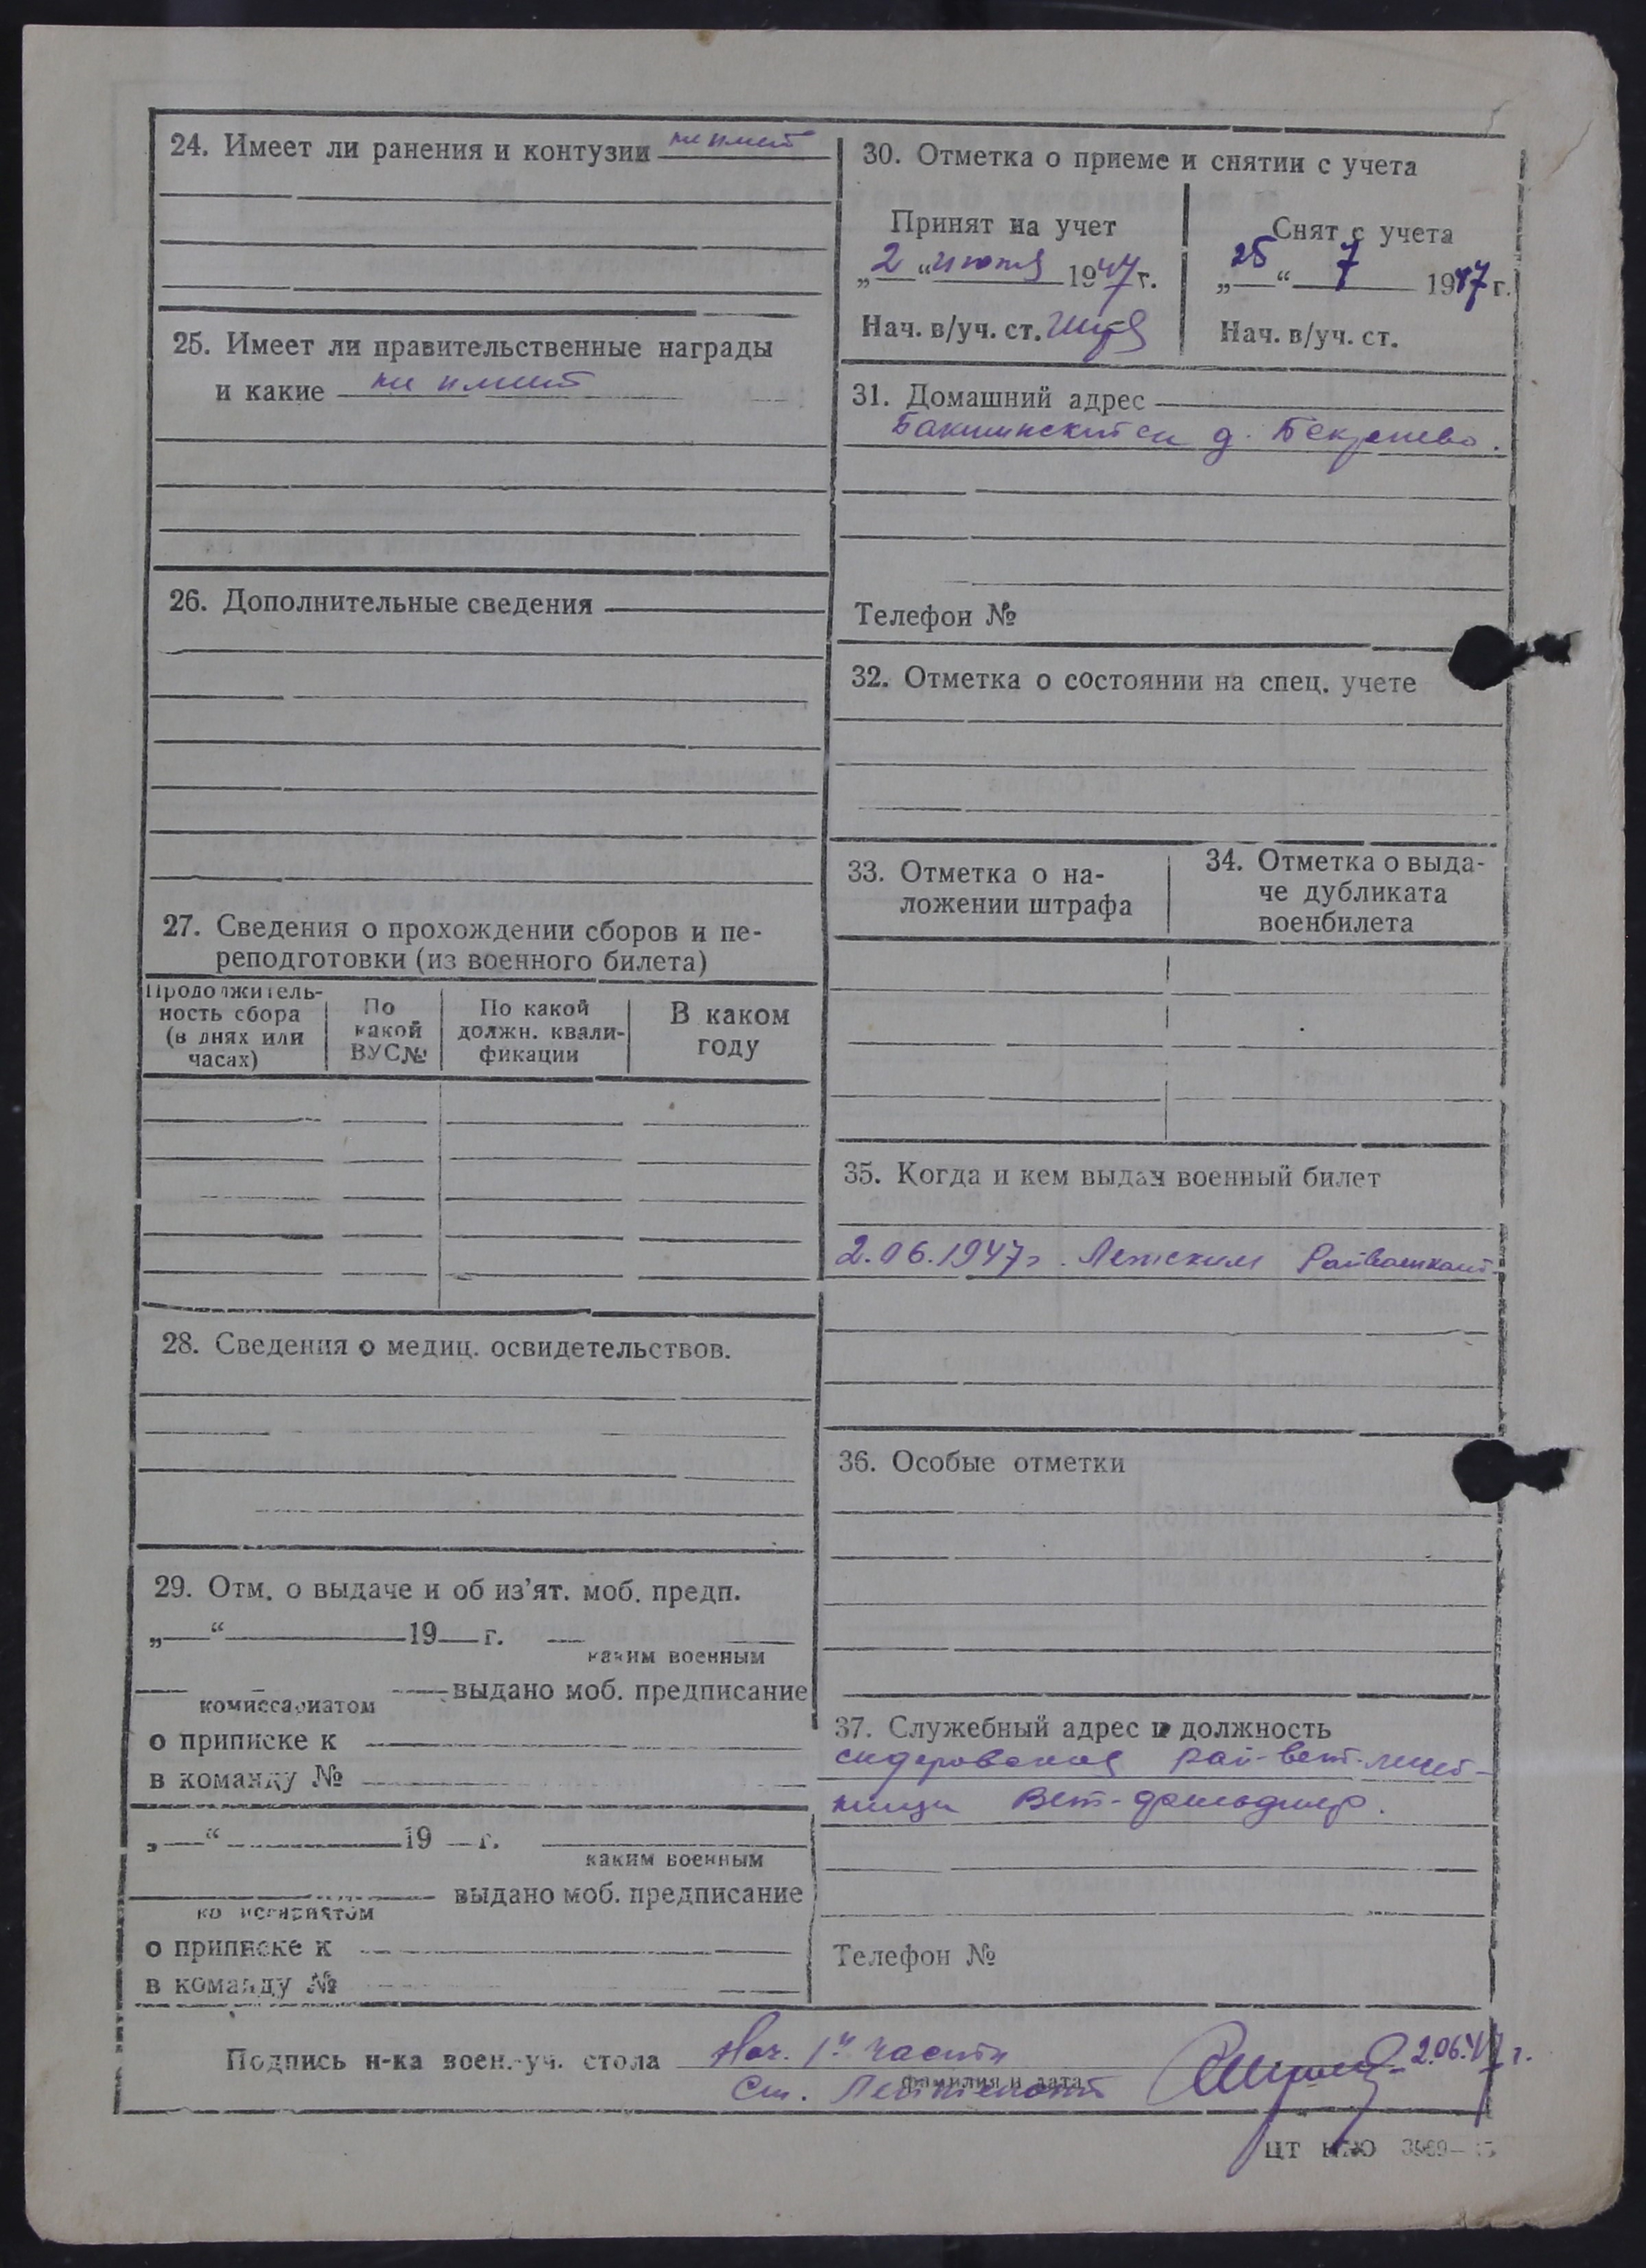 24. Имеет ли ранения и контузии не имеет
25. Имеет ли правительственные награды
и какие не имеет
26. Дополнительные сведения
27. Сведения о прохождении сборов и пе-
реподготовки (из военного билета)
Продолжитель-
ность сбора
(в днях или
часах)
По
какой
ВУС№
По какой
должн. квали-
фикации
В каком
году
28. Сведения о медиц. освидетельствов.
29. Отм. о выдаче и об из'ят. моб. предп.
„ “ 19 г.
каким военным
выдано моб. предписание
комиссариатом
о приписке к
в команду №
„ “ 19 г.
каким военным
выдано моб. предписание
комиссариатом
о приписке к
в команду №
30. Отметка о приеме и снятии с учета
Принят на учет
„2“ июня 1947 г.
Нач. в/уч. ст.
Снят с учета
„25“ 7 1947 г.
Нач. в/уч. ст.
31. Домашний адрес
д.
Телефон №
32. Отметка о состоянии на спец. учете
33. Отметка о на-
ложении штрафа
34. Отметка о выда-
че дубликата
военбилета
35. Когда и кем выдан военный билет
2.06.1947 г. Лежским Райвоенкомат.
36. Особые отметки
37. Служебный адрес и должность
сидеровская рай-вет-лечеб-
ницы Вет-фельдшер.
Телефон №
Подпись н-ка воен.-уч. стола Нач. 1й части
фамилия и дата
Ст. Лейтенант 2.06.47 г.
ЦТ НКО